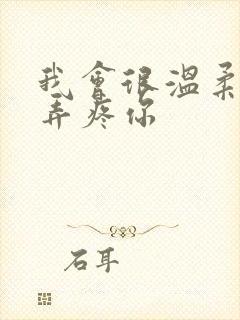 我會很溫柔
弄疼你
石耳